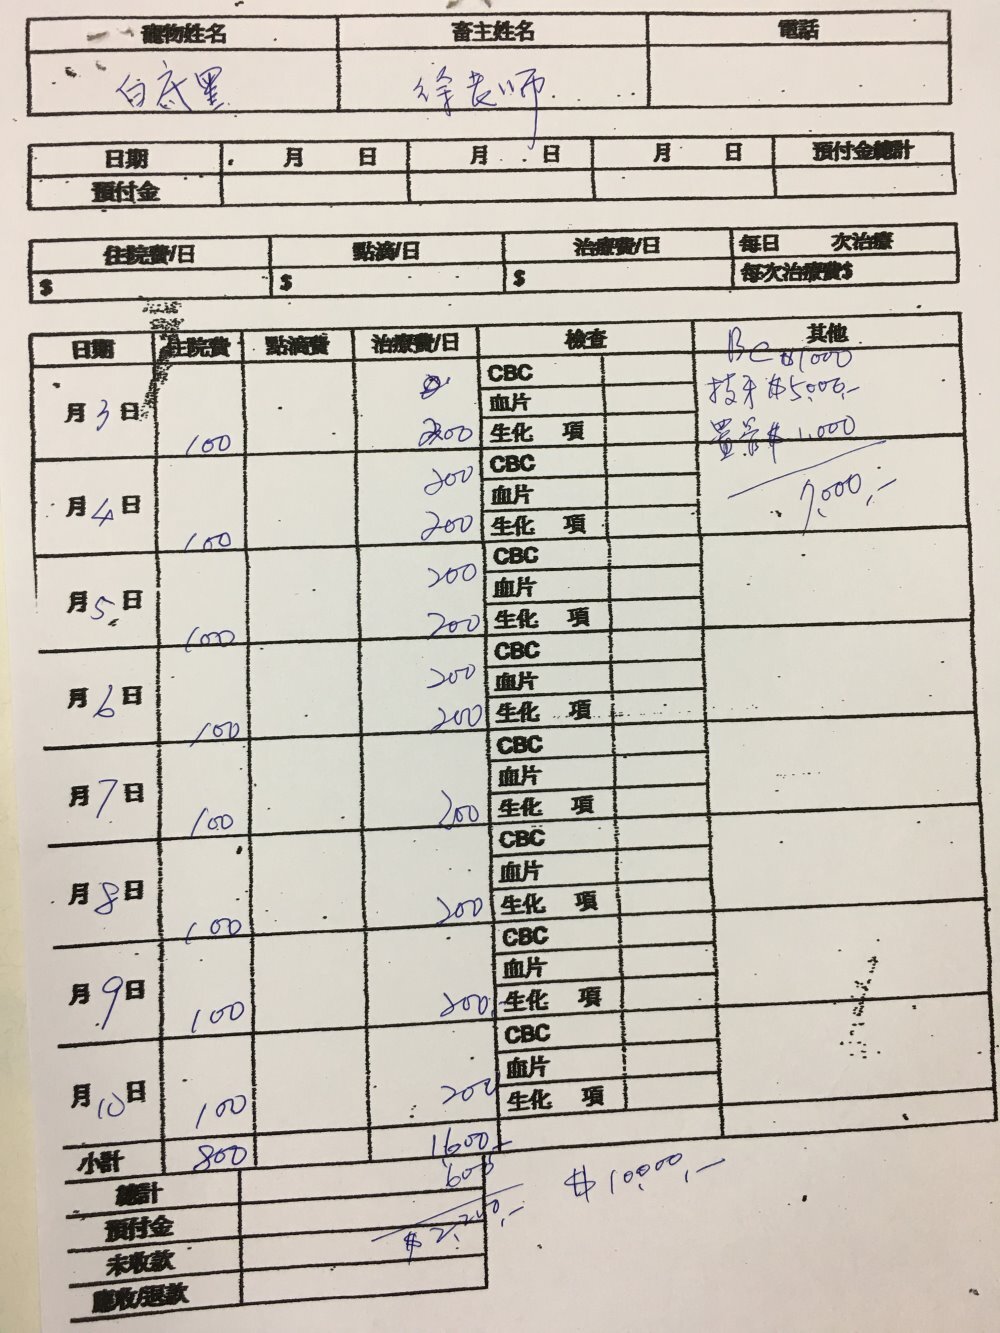 寵物姓名 畜主姓名 電話
白底黑 徐老师
日期 月 日 月 日 月 日 預付金總計
預付金
住院費/日 點滴/日 治療費/日 每日 次治療
$ $ $ 每次治療費$
日期 住院費 點滴費 治療費/日 檢查 其他
BC $1000
CBC
月 3 日 血片 拔牙 $5,000,-
100 200 生化 項 置管 $ 1,000
200 CBC
月 4 日 血片 7,000,-
100 200 生化 項
200 CBC
月 5 日 血片
100 200 生化 項
200 CBC
月 6 日 血片
100 200 生化 項
CBC
月 7 日 血片
100 200 生化 項
CBC
月 8 日 血片
100 200 生化 項
CBC
月 9 日 血片
100 200 生化 項
CBC
月 10 日 血片
100 200 生化 項
小計 800 1600,-
總計 600 $ 10000,-
預付金
未收款
應收/退款